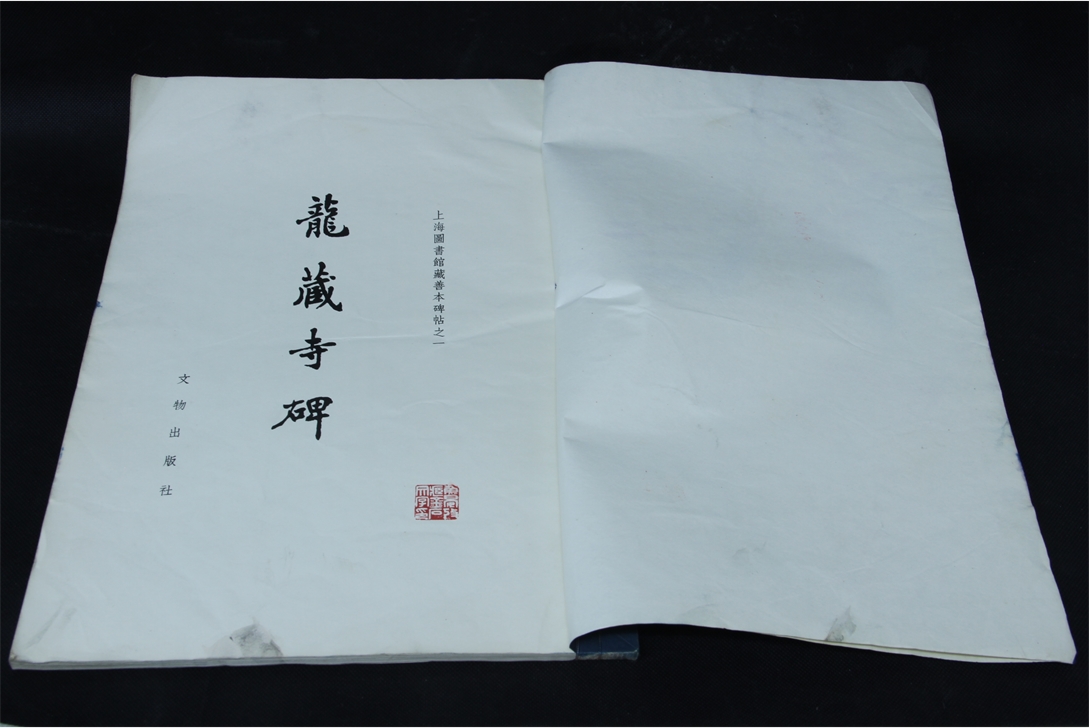 上海圖書館藏善本碑帖之一
龍藏寺碑
文物出版社